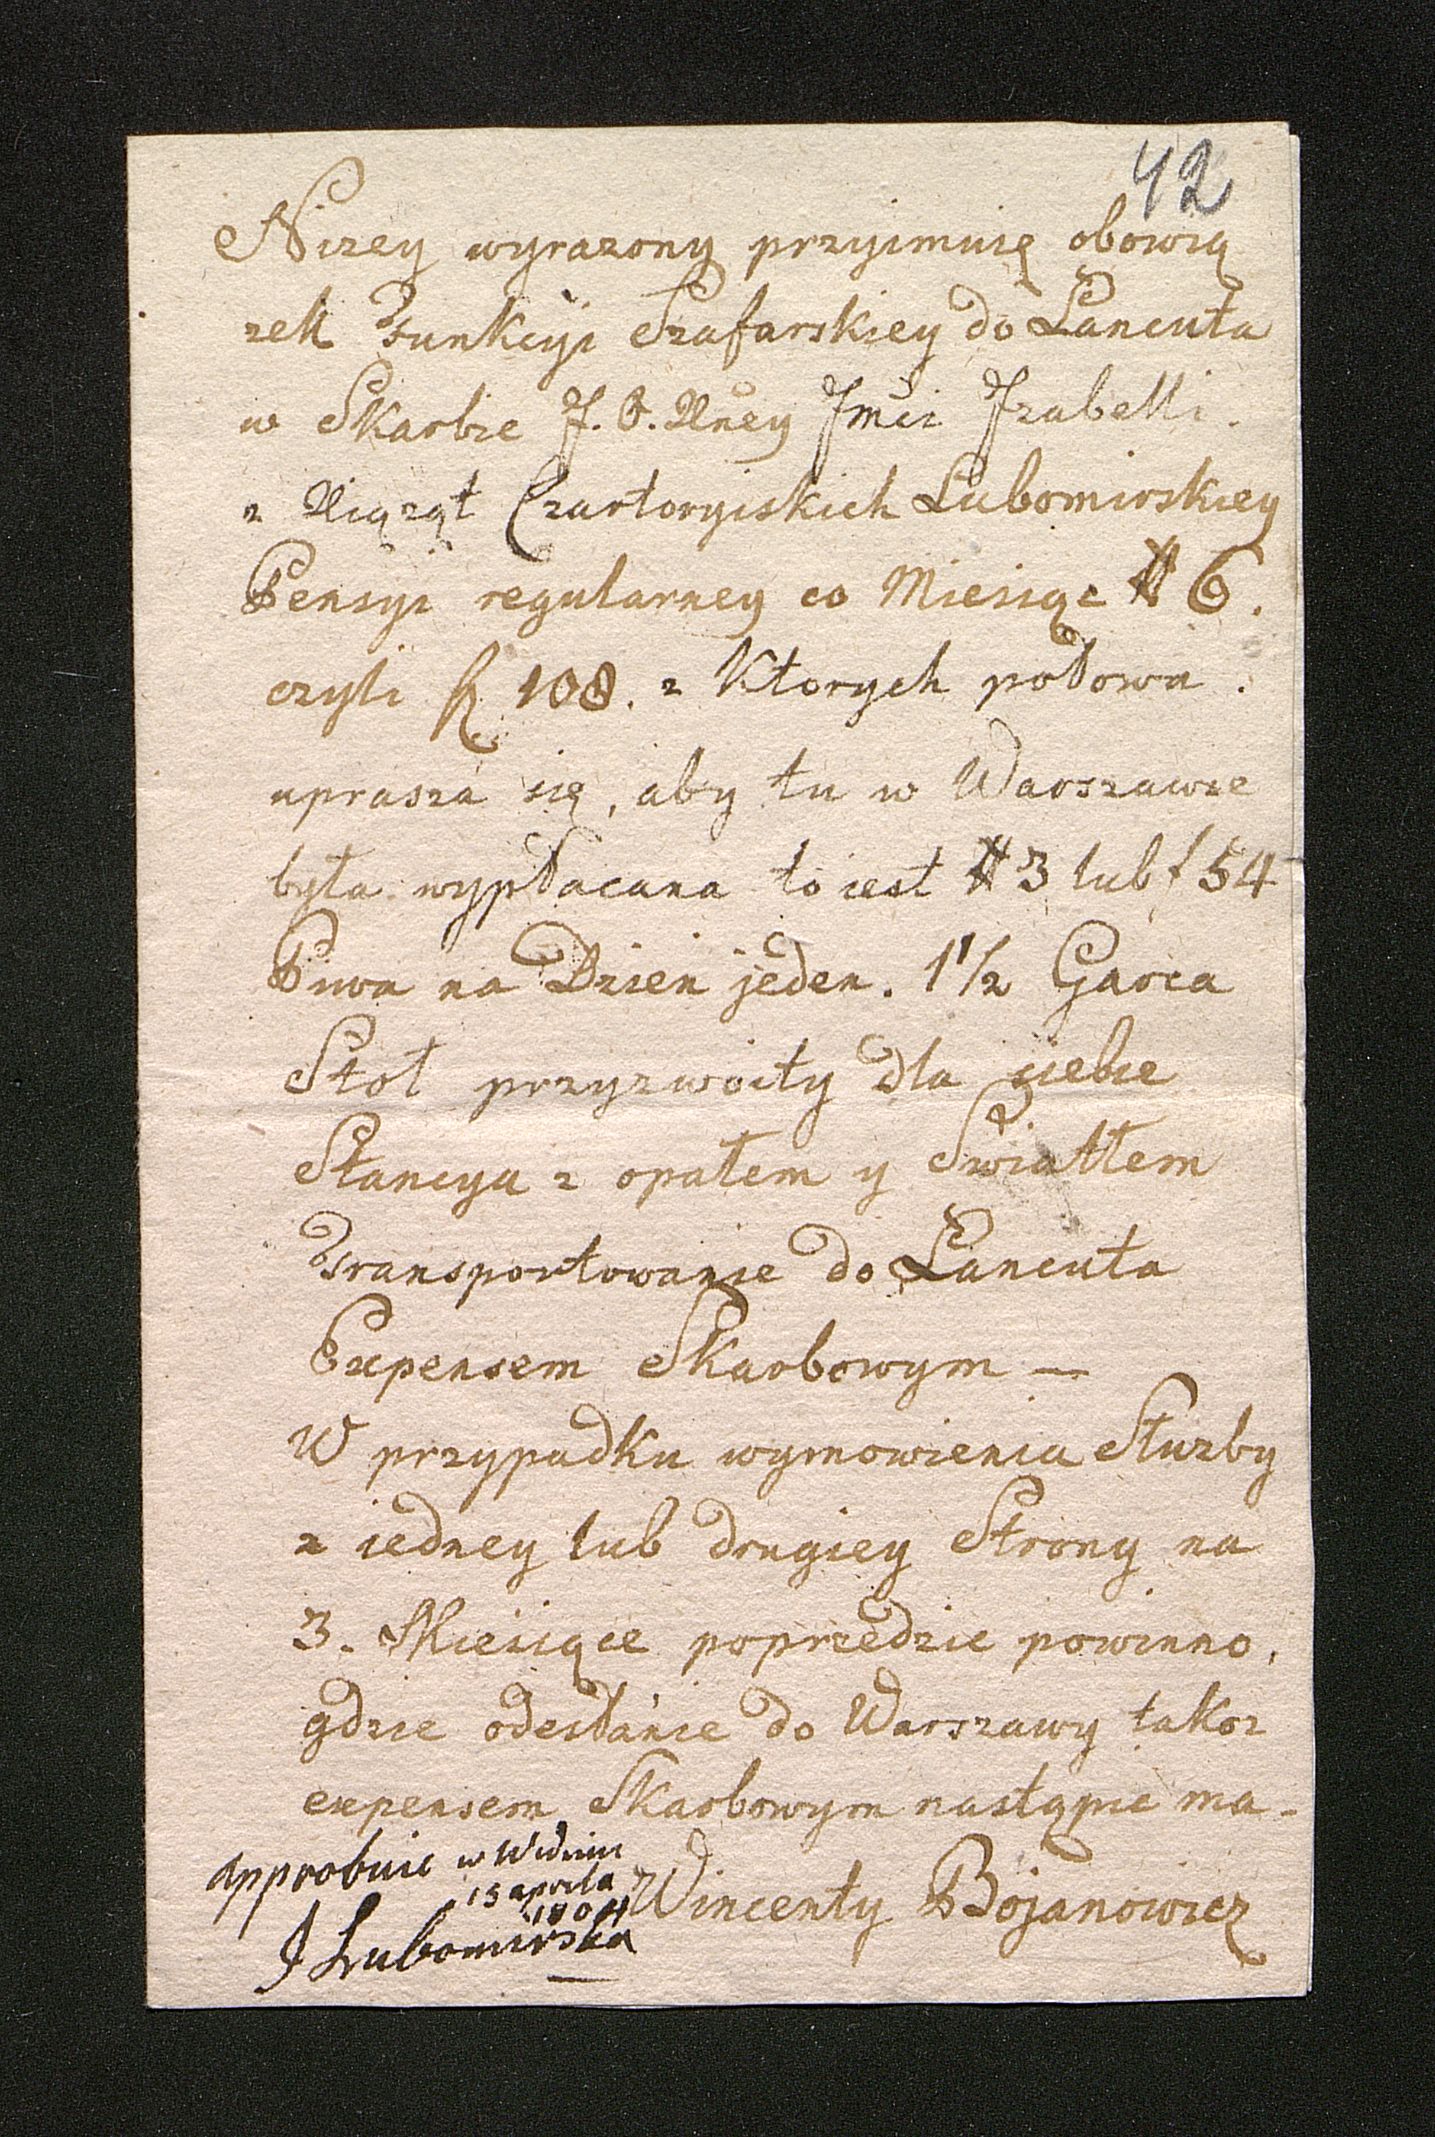 42
Nizey wyrazony przyimuię obowią
zek Funkcyi Szafarskiey do Lancuta
w Skarbie J. O. Xney Jmci Izabelli
z Xiąząt Czartoryiskich Lubomirskiey
Pensyi regularney co Miesiąc # 6.
czyli 108. z Ktorych połowa
uprasza się, aby tu w Warszawie
była wypłacana to iest # 3 lub f 54
Piwa na Dzien jeden. 1 1/2 Garca
Stoł przyzwoity dla siebie
Stancya z opałem y Swiatłem
Transportowanie do Lancuta
Expensem Skarbowym —
W przypadku wymowienia Słuzby
z iedney lub drugiey Strony na
3. Miesiące poprzedzie powinno,
gdzie odesłanie do Warszawy takoz
expensem Skarbowym nastąpic ma -
approbuie w Widniu
15 aprila
1804
J Lubomirska
Wincenty Bojanowicz